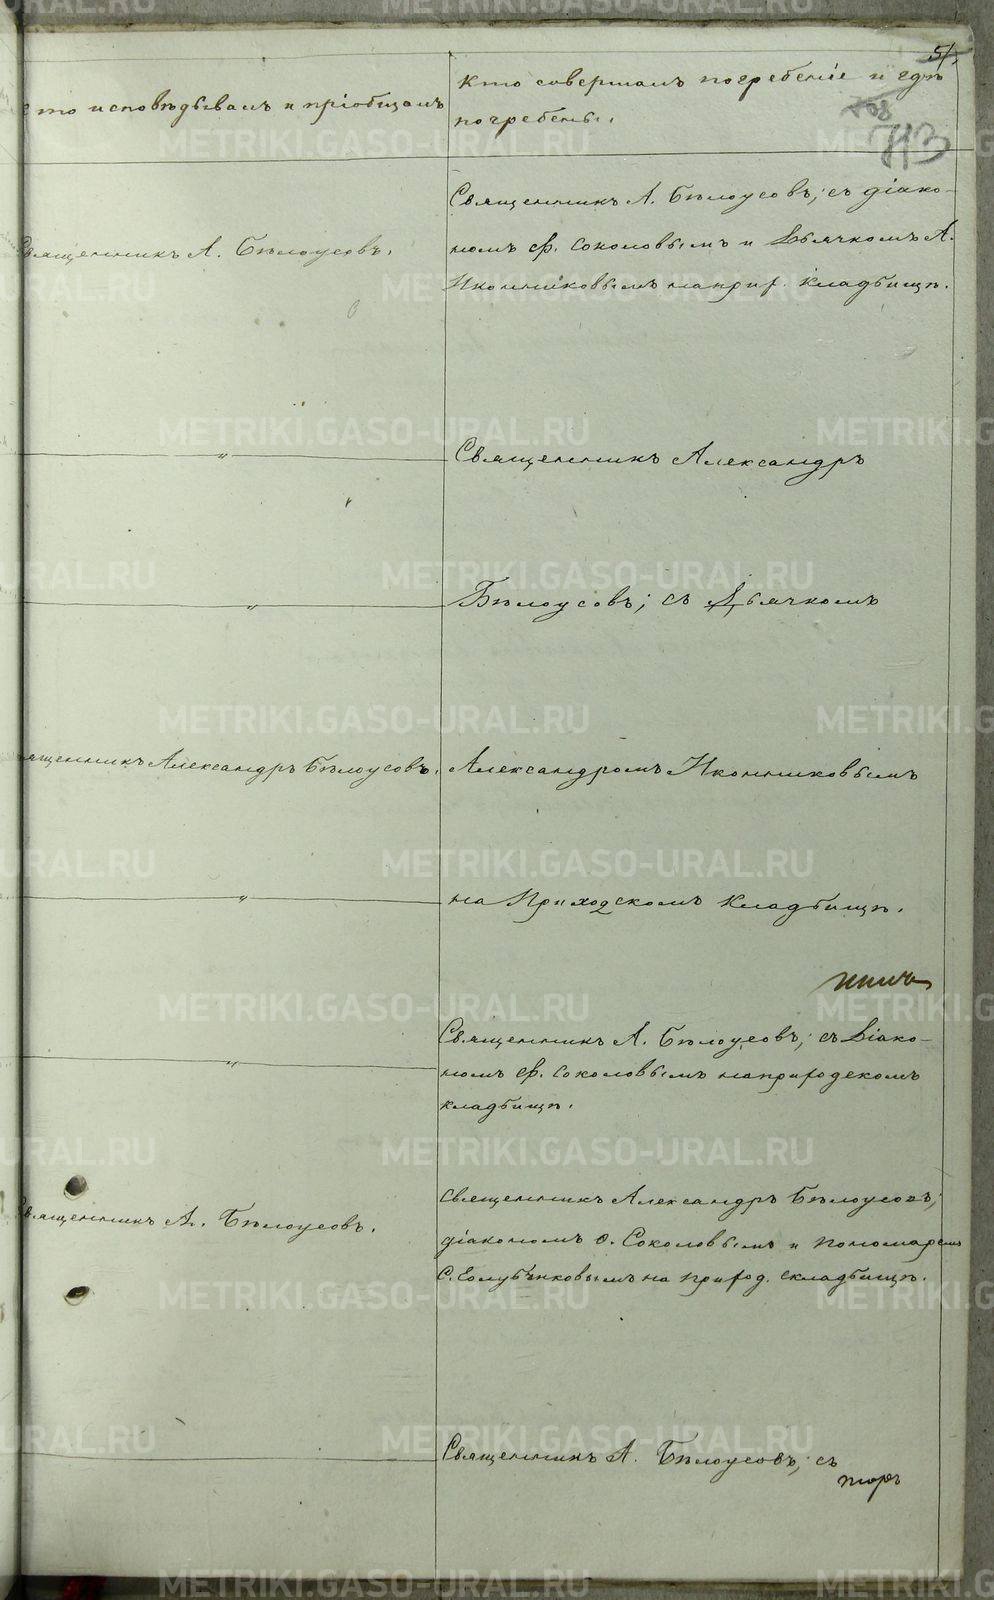 51.
Кто исповѣдывалъ и пріобщалъ
Кто совершалъ погребеніе и гдѣ
погребены.
708
713
Священникъ А. Бѣлоусовъ.
Священникъ А. Бѣлоусовъ; съ діако-
номъ Ф. Соколовымъ и Дьячкомъ А.
Иконниковымъ на прих. кладбищѣ.
„
Священникъ Александръ
„
Бѣлоусовъ; съ Дьячкомъ
ященникъ Александръ Бѣлоусовъ.
Александромъ Иконниковымъ
„
на Приходскомъ Кладбищѣ.
„
Священникъ А. Бѣлоусовъ; съ Діако-
номъ Ф. Соколовымъ на приходскомъ
кладбищѣ.
Священникъ А. Бѣлоусовъ.
Священникъ Александръ Бѣлоусовъ;
діакономъ Ѳ. Соколовымъ и пономаремъ
С. Голубчиковымъ на приход. кладбищѣ.
Священникъ А. Бѣлоусовъ; съ
METRIKI.GASO-URAL.RU